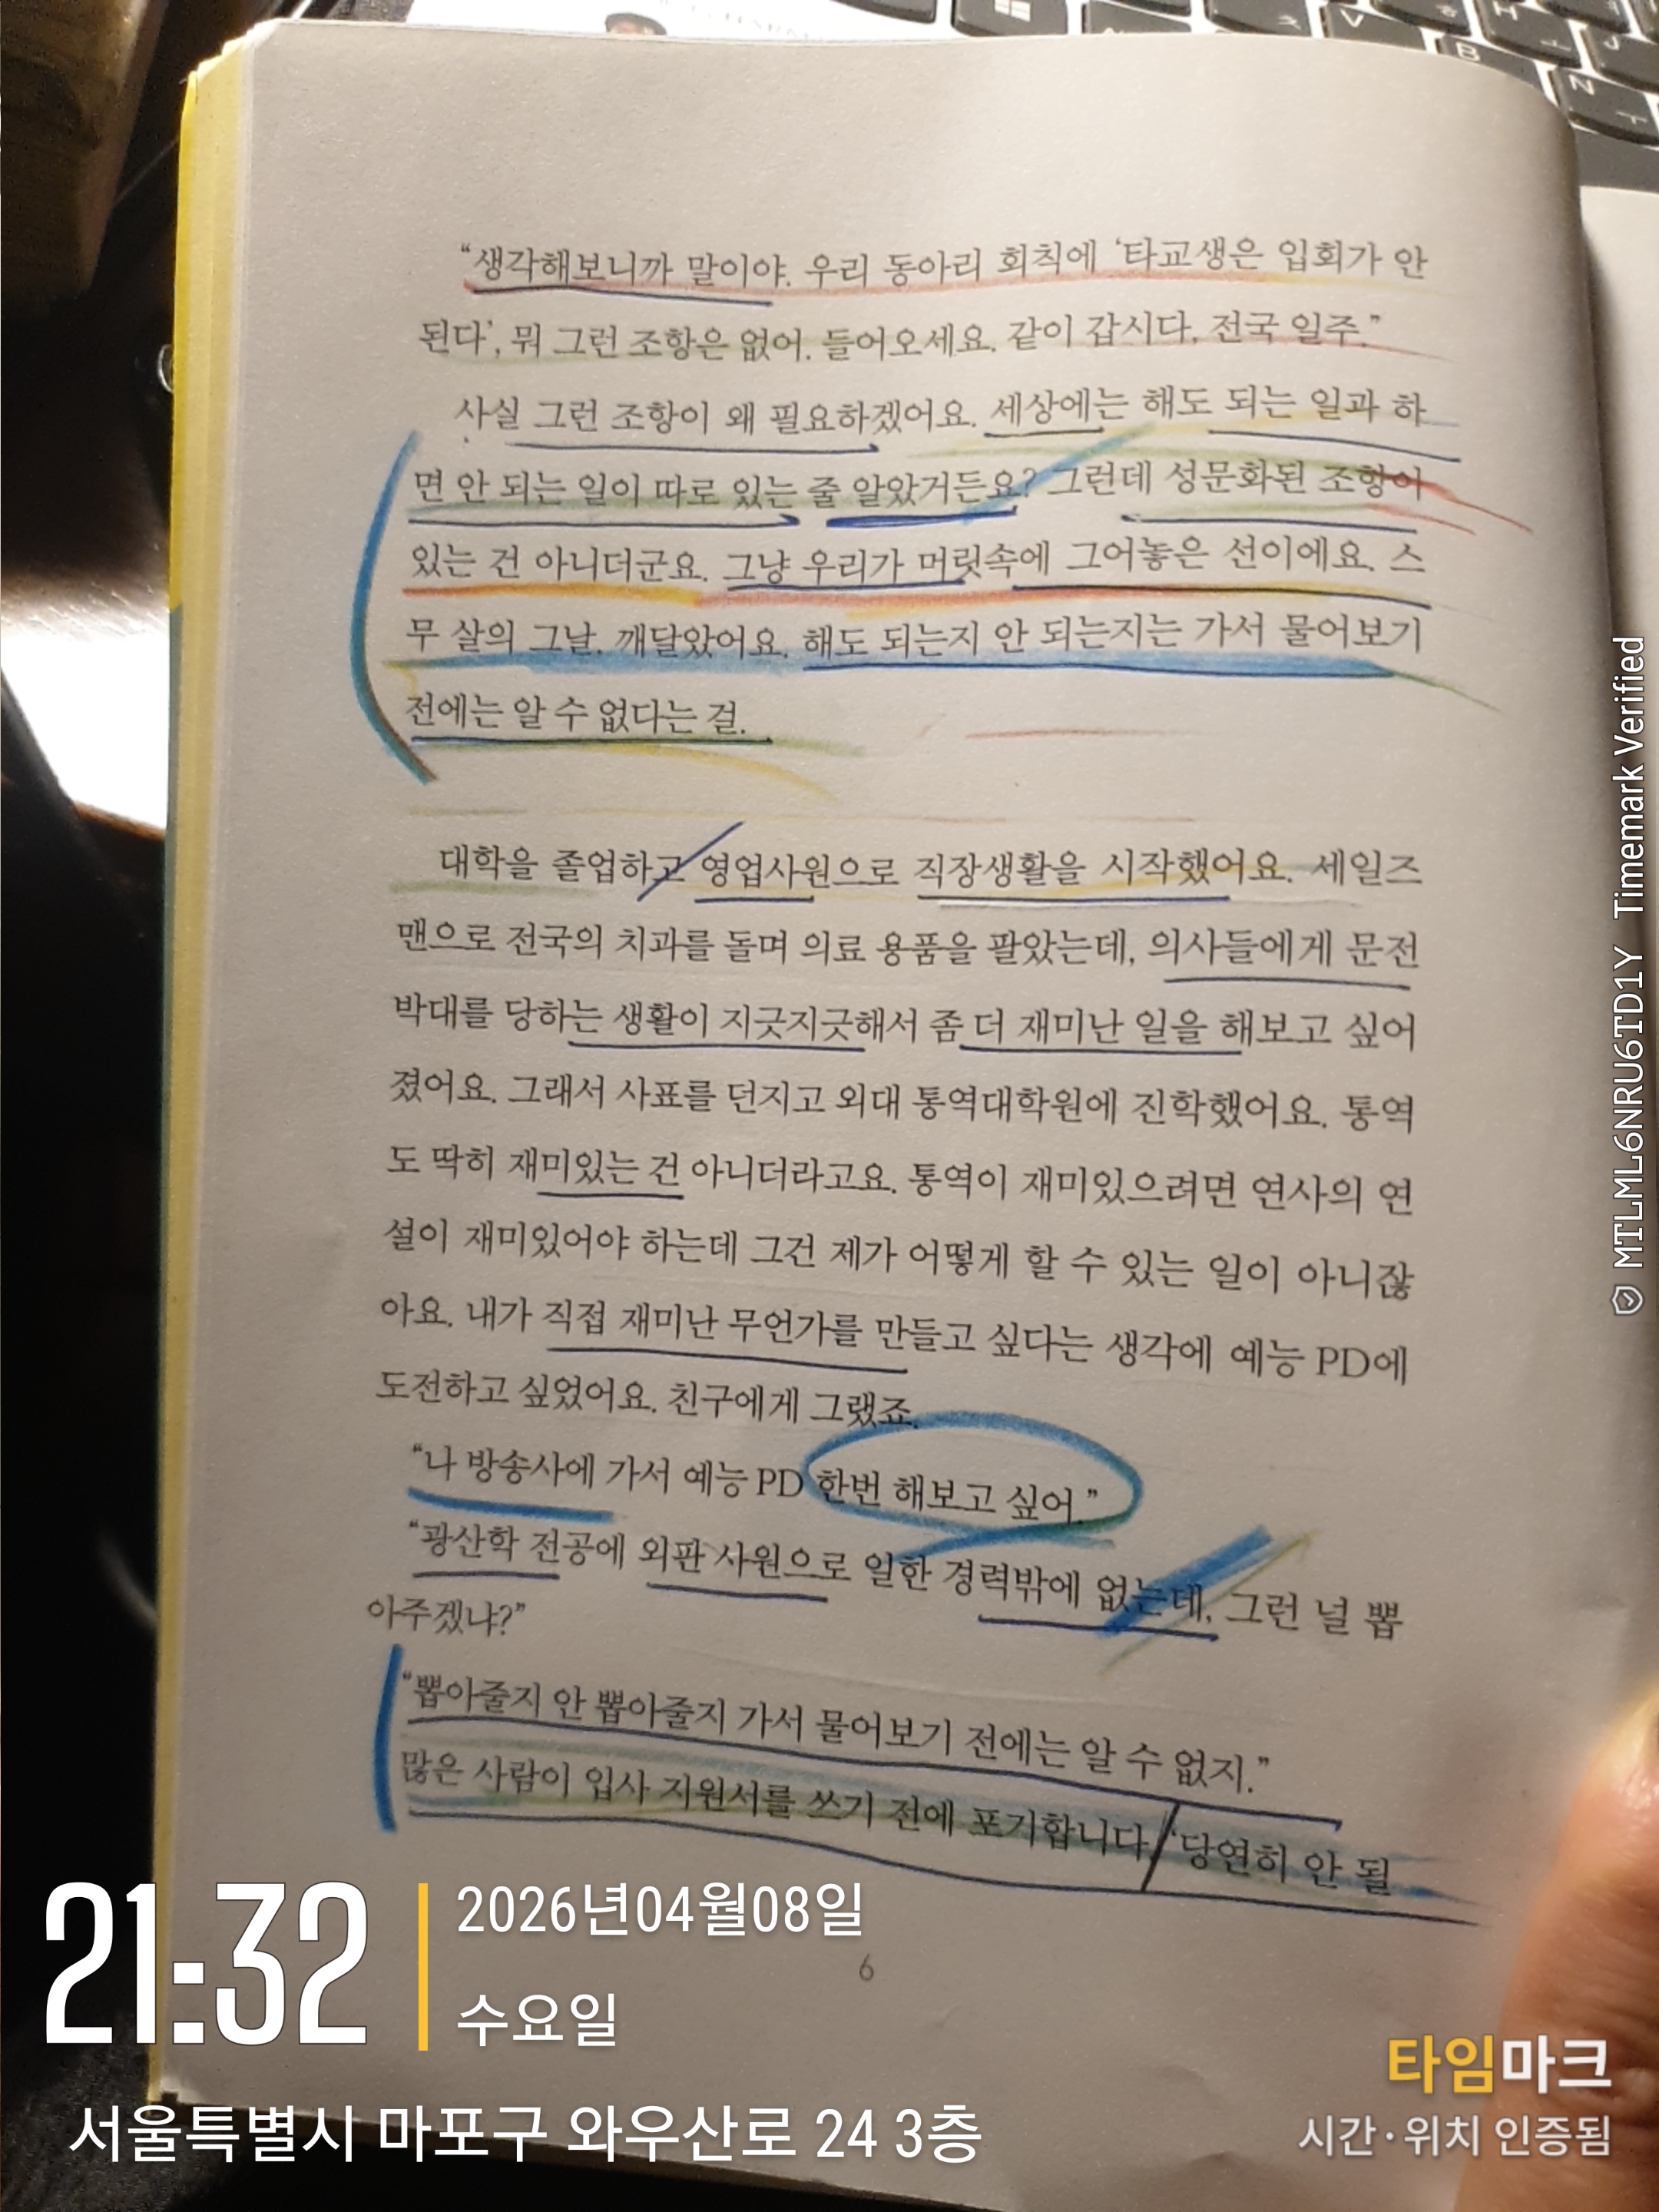 “생각해보니까 말이야. 우리 동아리 회칙에 ‘타교생은 입회가 안
된다’, 뭐 그런 조항은 없어. 들어오세요. 같이 갑시다, 전국 일주.”
사실 그런 조항이 왜 필요하겠어요. 세상에는 해도 되는 일과 하
면 안 되는 일이 따로 있는 줄 알았거든요? 그런데 성문화된 조항이
있는 건 아니더군요. 그냥 우리가 머릿속에 그어놓은 선이에요. 스
무 살의 그날, 깨달았어요. 해도 되는지 안 되는지는 가서 물어보기
전에는 알 수 없다는 걸.
대학을 졸업하고 영업사원으로 직장생활을 시작했어요. 세일즈
맨으로 전국의 치과를 돌며 의료 용품을 팔았는데, 의사들에게 문전
박대를 당하는 생활이 지긋지긋해서 좀 더 재미난 일을 해보고 싶어
졌어요. 그래서 사표를 던지고 외대 통역대학원에 진학했어요. 통역
도 딱히 재미있는 건 아니더라고요. 통역이 재미있으려면 연사의 연
설이 재미있어야 하는데 그건 제가 어떻게 할 수 있는 일이 아니잖
아요. 내가 직접 재미난 무언가를 만들고 싶다는 생각에 예능 PD에
도전하고 싶었어요. 친구에게 그랬죠.
“나 방송사에 가서 예능 PD 한번 해보고 싶어.”
“광산학 전공에 외판 사원으로 일한 경력밖에 없는데, 그런 널 뽑
아주겠냐?”
“뽑아줄지 안 뽑아줄지 가서 물어보기 전에는 알 수 없지.”
많은 사람이 입사 지원서를 쓰기 전에 포기합니다. ‘당연히 안 될
6
21:32
2026년04월08일
수요일
서울특별시 마포구 와우산로 24 3층
타임마크
시간·위치 인증됨
MTLML6NRU6TD1Y Timemark Verified
V
B
H
N
J